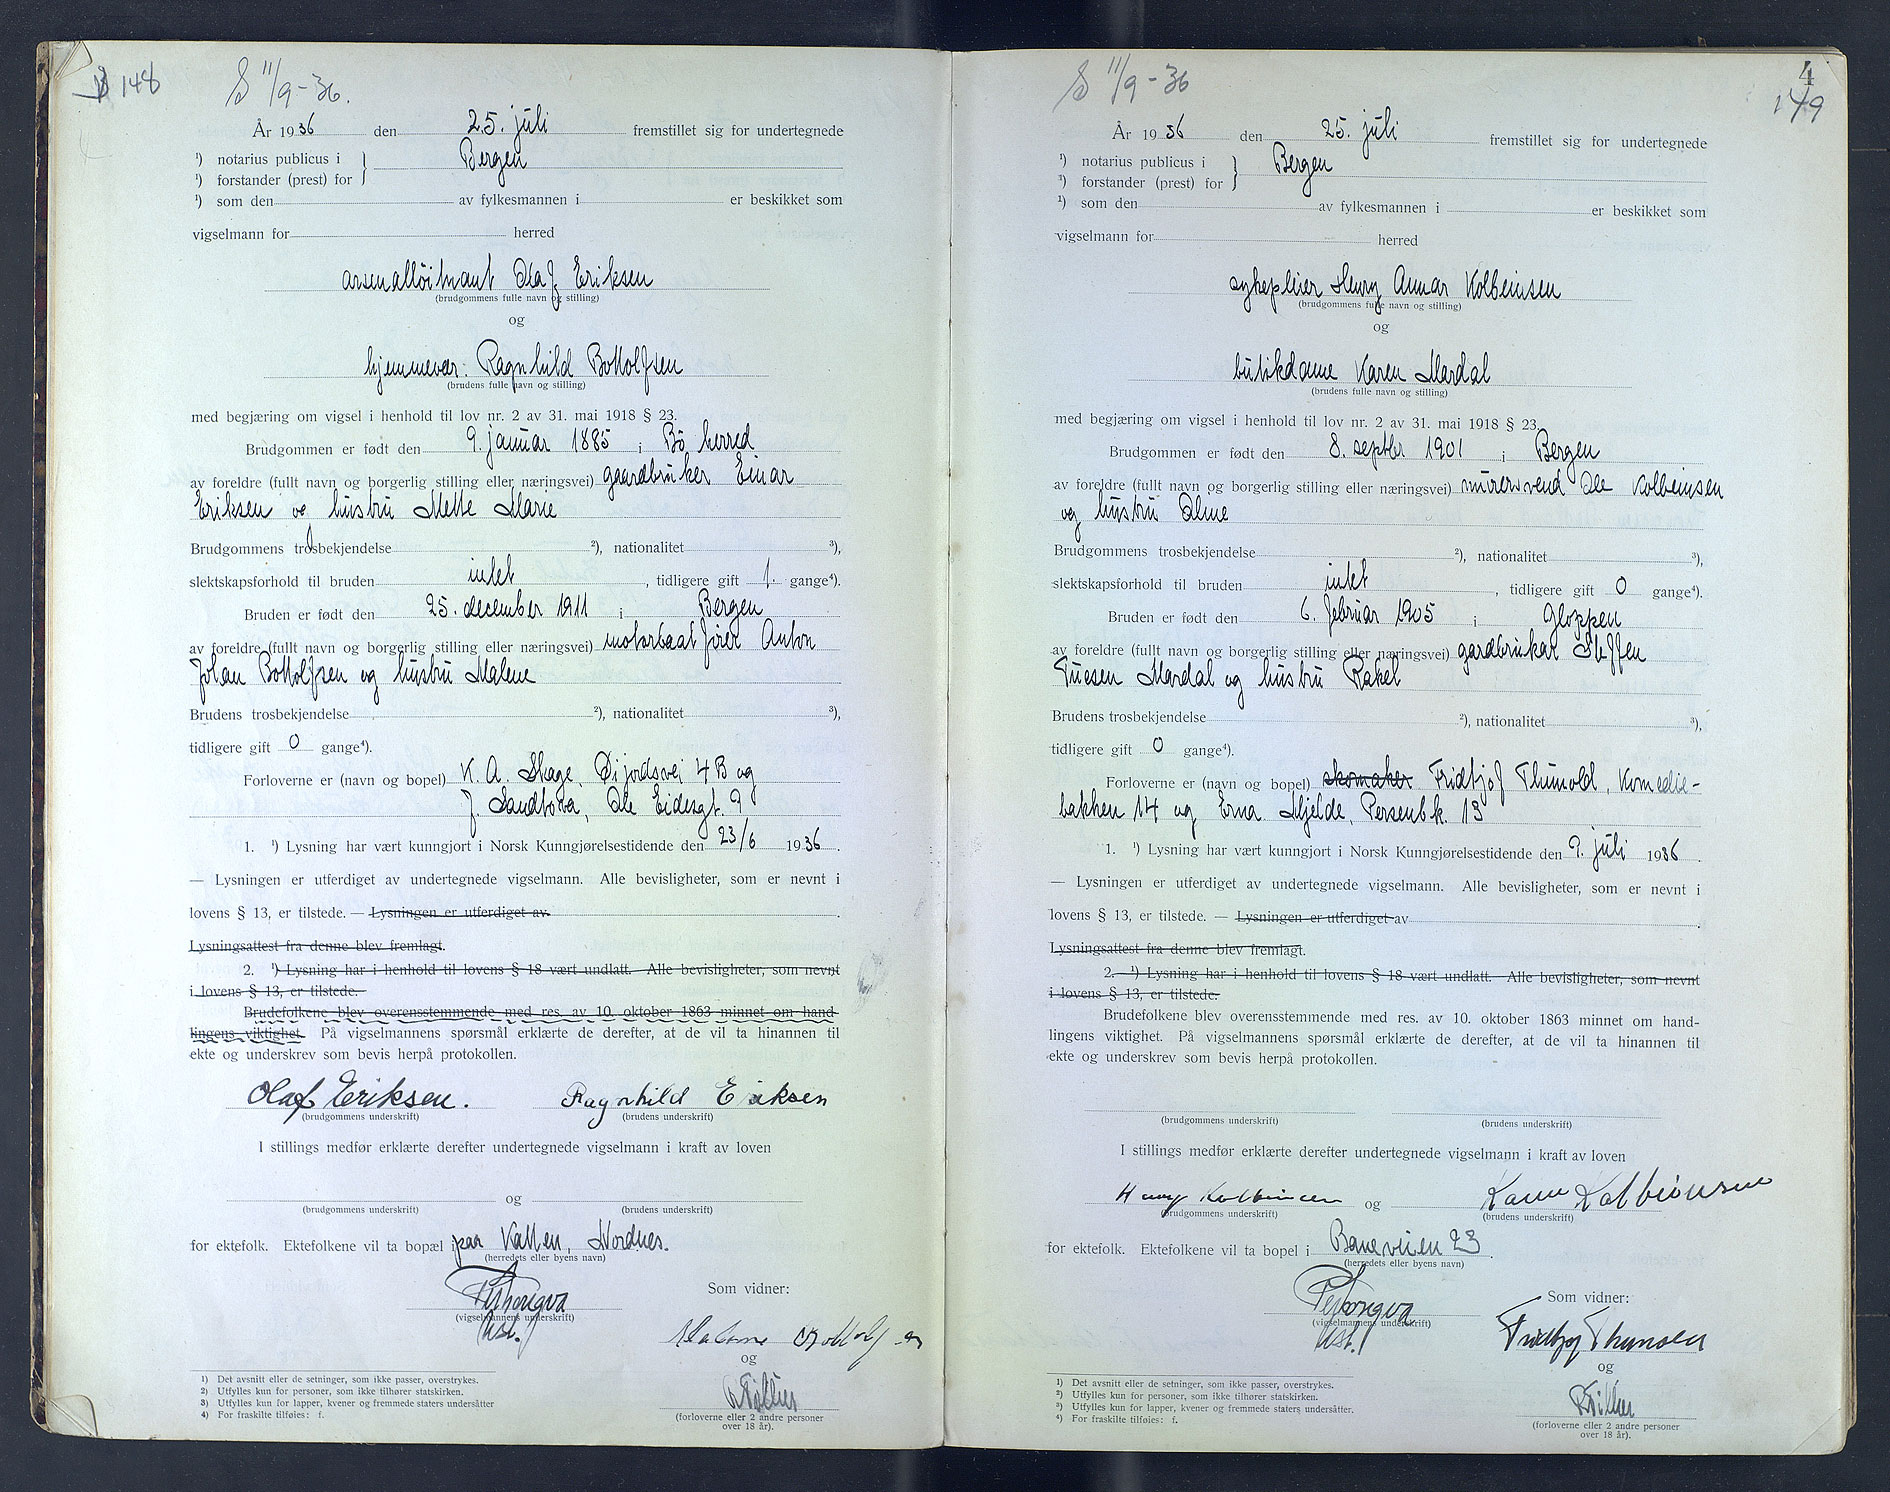 148
S 11/9-36.
År 1936 den 25. juli fremstillet sig for undertegnede
¹) notarius publicus i } Bergen
¹) forstander (prest) for
¹) som den av fylkesmannen i er beskikket som
vigselmann for herred
arsenalløitnant Olaf Eriksen
(brudgommens fulle navn og stilling)
og
hjemmevær. Ragnhild Bottolfsen
(brudens fulle navn og stilling)
med begjæring om vigsel i henhold til lov nr. 2 av 31. mai 1918 § 23.
Brudgommen er født den 9. januar 1885 i Bö herred
av foreldre (fullt navn og borgerlig stilling eller næringsvei) gaardbruker Einar
Eriksen og hustru Mette Marie
Brudgommens trosbekjendelse ²), nationalitet ³),
slektskapsforhold til bruden intet, tidligere gift 1. gange⁴).
Bruden er født den 25. december 1911 i Bergen
av foreldre (fullt navn og borgerlig stilling eller næringsvei) motorbaatfører Anton
Johan Bottolfsen og hustru Malene
Brudens trosbekjendelse ²), nationalitet ³),
tidligere gift 0 gange⁴).
Forloverne er (navn og bopel) K. A. Skage, Øijordsvei 4B og
J. Sandtorva, Ole Eidesgt. 9
1. ¹) Lysning har vært kunngjort i Norsk Kunngjørelsestidende den 23/6 1936.
— Lysningen er utferdiget av undertegnede vigselmann. Alle bevisligheter, som er nevnt i
lovens § 13, er tilstede. — Lysningen er utferdiget av.
Lysningsattest fra denne blev fremlagt.
2. ¹) Lysning har i henhold til lovens § 18 vært undlatt. Alle bevisligheter, som nevnt
i lovens § 13, er tilstede.
Brudefolkene blev overensstemmende med res. av 10. oktober 1863 minnet om hand-
lingens viktighet. På vigselmannens spørsmål erklærte de derefter, at de vil ta hinannen til
ekte og underskrev som bevis herpå protokollen.
Olaf Eriksen. Ragnhild Eriksen
(brudgommens underskrift) (brudens underskrift)
I stillings medfør erklærte derefter undertegnede vigselmann i kraft av loven
og
(brudgommens underskrift) (brudens underskrift)
for ektefolk. Ektefolkene vil ta bopæl paa Katten, Nordnes.
(herredets eller byens navn)
Som vidner:
(vigselmannens underskrift)
Malene Bottolfsen
og
(forloverne eller 2 andre personer
over 18 år).
1) Det avsnitt eller de setninger, som ikke passer, overstrykes.
2) Utfylles kun for personer, som ikke tilhører statskirken.
3) Utfylles kun for lapper, kvener og fremmede staters undersåtter
4) For fraskilte tilføies: f.
4
149
S 11/9-36
År 1936 den 25. juli fremstillet sig for undertegnede
¹) notarius publicus i } Bergen
¹) forstander (prest) for
¹) som den av fylkesmannen i er beskikket som
vigselmann for herred
sykepleier Henry Annar Kolbeinsen
(brudgommens fulle navn og stilling)
og
butikdame Karen Mardal
(brudens fulle navn og stilling)
med begjæring om vigsel i henhold til lov nr. 2 av 31. mai 1918 § 23.
Brudgommen er født den 8. septbr 1901 i Bergen
av foreldre (fullt navn og borgerlig stilling eller næringsvei) murersvend Ole Kolbeinsen
og hustru Oline
Brudgommens trosbekjendelse ²), nationalitet ³),
slektskapsforhold til bruden intet, tidligere gift 0 gange⁴).
Bruden er født den 6. februar 1905 i Gloppen
av foreldre (fullt navn og borgerlig stilling eller næringsvei) gardbrukar Steffen
Mardal og hustru Rakel
Brudens trosbekjendelse ²), nationalitet ³),
tidligere gift 0 gange⁴).
Forloverne er (navn og bopel) skomaker Fridtjof Thunold, Komedie-
bakken 14 og Erna Mjelde, Persenbk. 13
1. ¹) Lysning har vært kunngjort i Norsk Kunngjørelsestidende den 9. juli 1936.
— Lysningen er utferdiget av undertegnede vigselmann. Alle bevisligheter, som er nevnt i
lovens § 13, er tilstede. — Lysningen er utferdiget av
Lysningsattest fra denne blev fremlagt.
2. ¹) Lysning har i henhold til lovens § 18 vært undlatt. Alle bevisligheter, som nevnt
i lovens § 13, er tilstede.
Brudefolkene blev overensstemmende med res. av 10. oktober 1863 minnet om hand-
lingens viktighet. På vigselmannens spørsmål erklærte de derefter, at de vil ta hinannen til
ekte og underskrev som bevis herpå protokollen.
(brudgommens underskrift) (brudens underskrift)
I stillings medfør erklærte derefter undertegnede vigselmann i kraft av loven
Henry Kolbeinsen og Karen Kolbeinsen
(brudgommens underskrift) (brudens underskrift)
for ektefolk. Ektefolkene vil ta bopel i Baneveien 23.
(herredets eller byens navn)
Som vidner:
(vigselmannens underskrift)
Fridtjof
og
(forloverne eller 2 andre personer
over 18 år).
¹) Det avsnitt eller de setninger, som ikke passer, overstrykes.
²) Utfylles kun for personer, som ikke tilhører statskirken.
³) Utfylles kun for lapper, kvener og fremmede staters undersåtter.
⁴) For fraskilte tilføies: f.